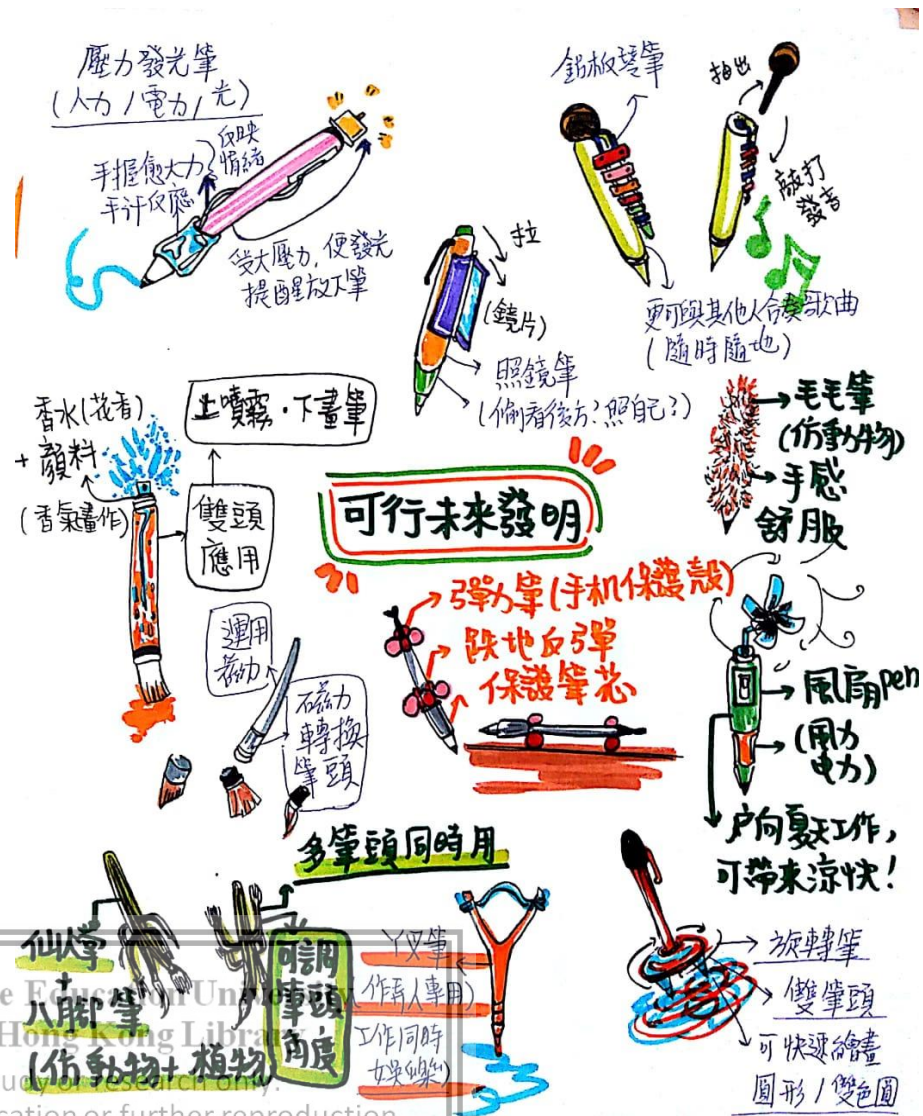 壓力發光筆
(人力/電力/光)
手握愈大力
手汁反應
反映
情緒
受大壓力，便發光
提醒放下筆
鋁板琴筆
抽出
敲打
發音
更可與其他人合奏歌曲
(隨時隨地)
拉
(鏡片)
照鏡筆
(偷看後方?照自己?)
香水(花香)
+ 顏料
(香氣畫作)
上噴霧·下畫筆
雙頭
應用
可行未來發明
毛毛筆
(仿動物)
手感
舒服
運用
磁力
磁力
轉換
筆頭
彈力筆(手机保護殼)
跌地反彈
保護筆芯
風扇pen
(風力
电力)
户向夏天工作，
可帶來涼快!
多筆頭同時用
仙人掌
+
八腳筆
(仿動物+植物
可調
筆頭
角度
丫叉筆
工作同時
娛樂)
旋轉筆
雙筆頭
可快速繪畫
圓形/雙色圓
The Education University
Hong Kong Library
study or research only.
cation or further reproduction